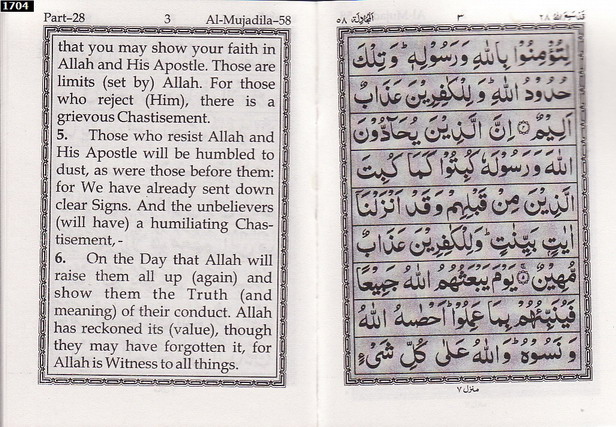 1704
Part-28 3 Al-Mujadila-58
that you may show your faith in
Allah and His Apostle. Those are
limits (set by) Allah. For those
who reject (Him), there is a
grievous Chastisement.
5. Those who resist Allah and
His Apostle will be humbled to
dust, as were those before them:
for We have already sent down
clear Signs. And the unbelievers
(will have) a humiliating Chas-
tisement,-
6. On the Day that Allah will
raise them all up (again) and
show them the Truth (and
meaning) of their conduct. Allah
has reckoned its (value), though
they may have forgotten it, for
Allah is Witness to all things.
المجادلة ۵۸ ۳ قد سمع الله ۲۸
لِتُؤْمِنُوْا بِاللهِ وَرَسُوْلِهٖ ؕ وَتِلْكَ
حُدُوْدُ اللهِ ؕ وَلِلْكٰفِرِيْنَ عَذَابٌ
اَلِيْمٌ ۴ اِنَّ الَّذِيْنَ يُحَآدُّوْنَ
اللهَ وَرَسُوْلَهٗ كُبِتُوْا كَمَا كُبِتَ
الَّذِيْنَ مِنْ قَبْلِهِمْ وَقَدْ اَنْزَلْنَاۤ
اٰيٰتٍۭ بَيِّنٰتٍ ؕ وَلِلْكٰفِرِيْنَ عَذَابٌ
مُّهِيْنٌ ۵ يَوْمَ يَبْعَثُهُمُ اللهُ جَمِيْعًا
فَيُنَبِّئُهُمْ بِمَا عَمِلُوْا ؕ اَحْصٰىهُ اللهُ
وَنَسُوْهُ ؕ وَاللهُ عَلٰى كُلِّ شَىْءٍ
منزل ۷